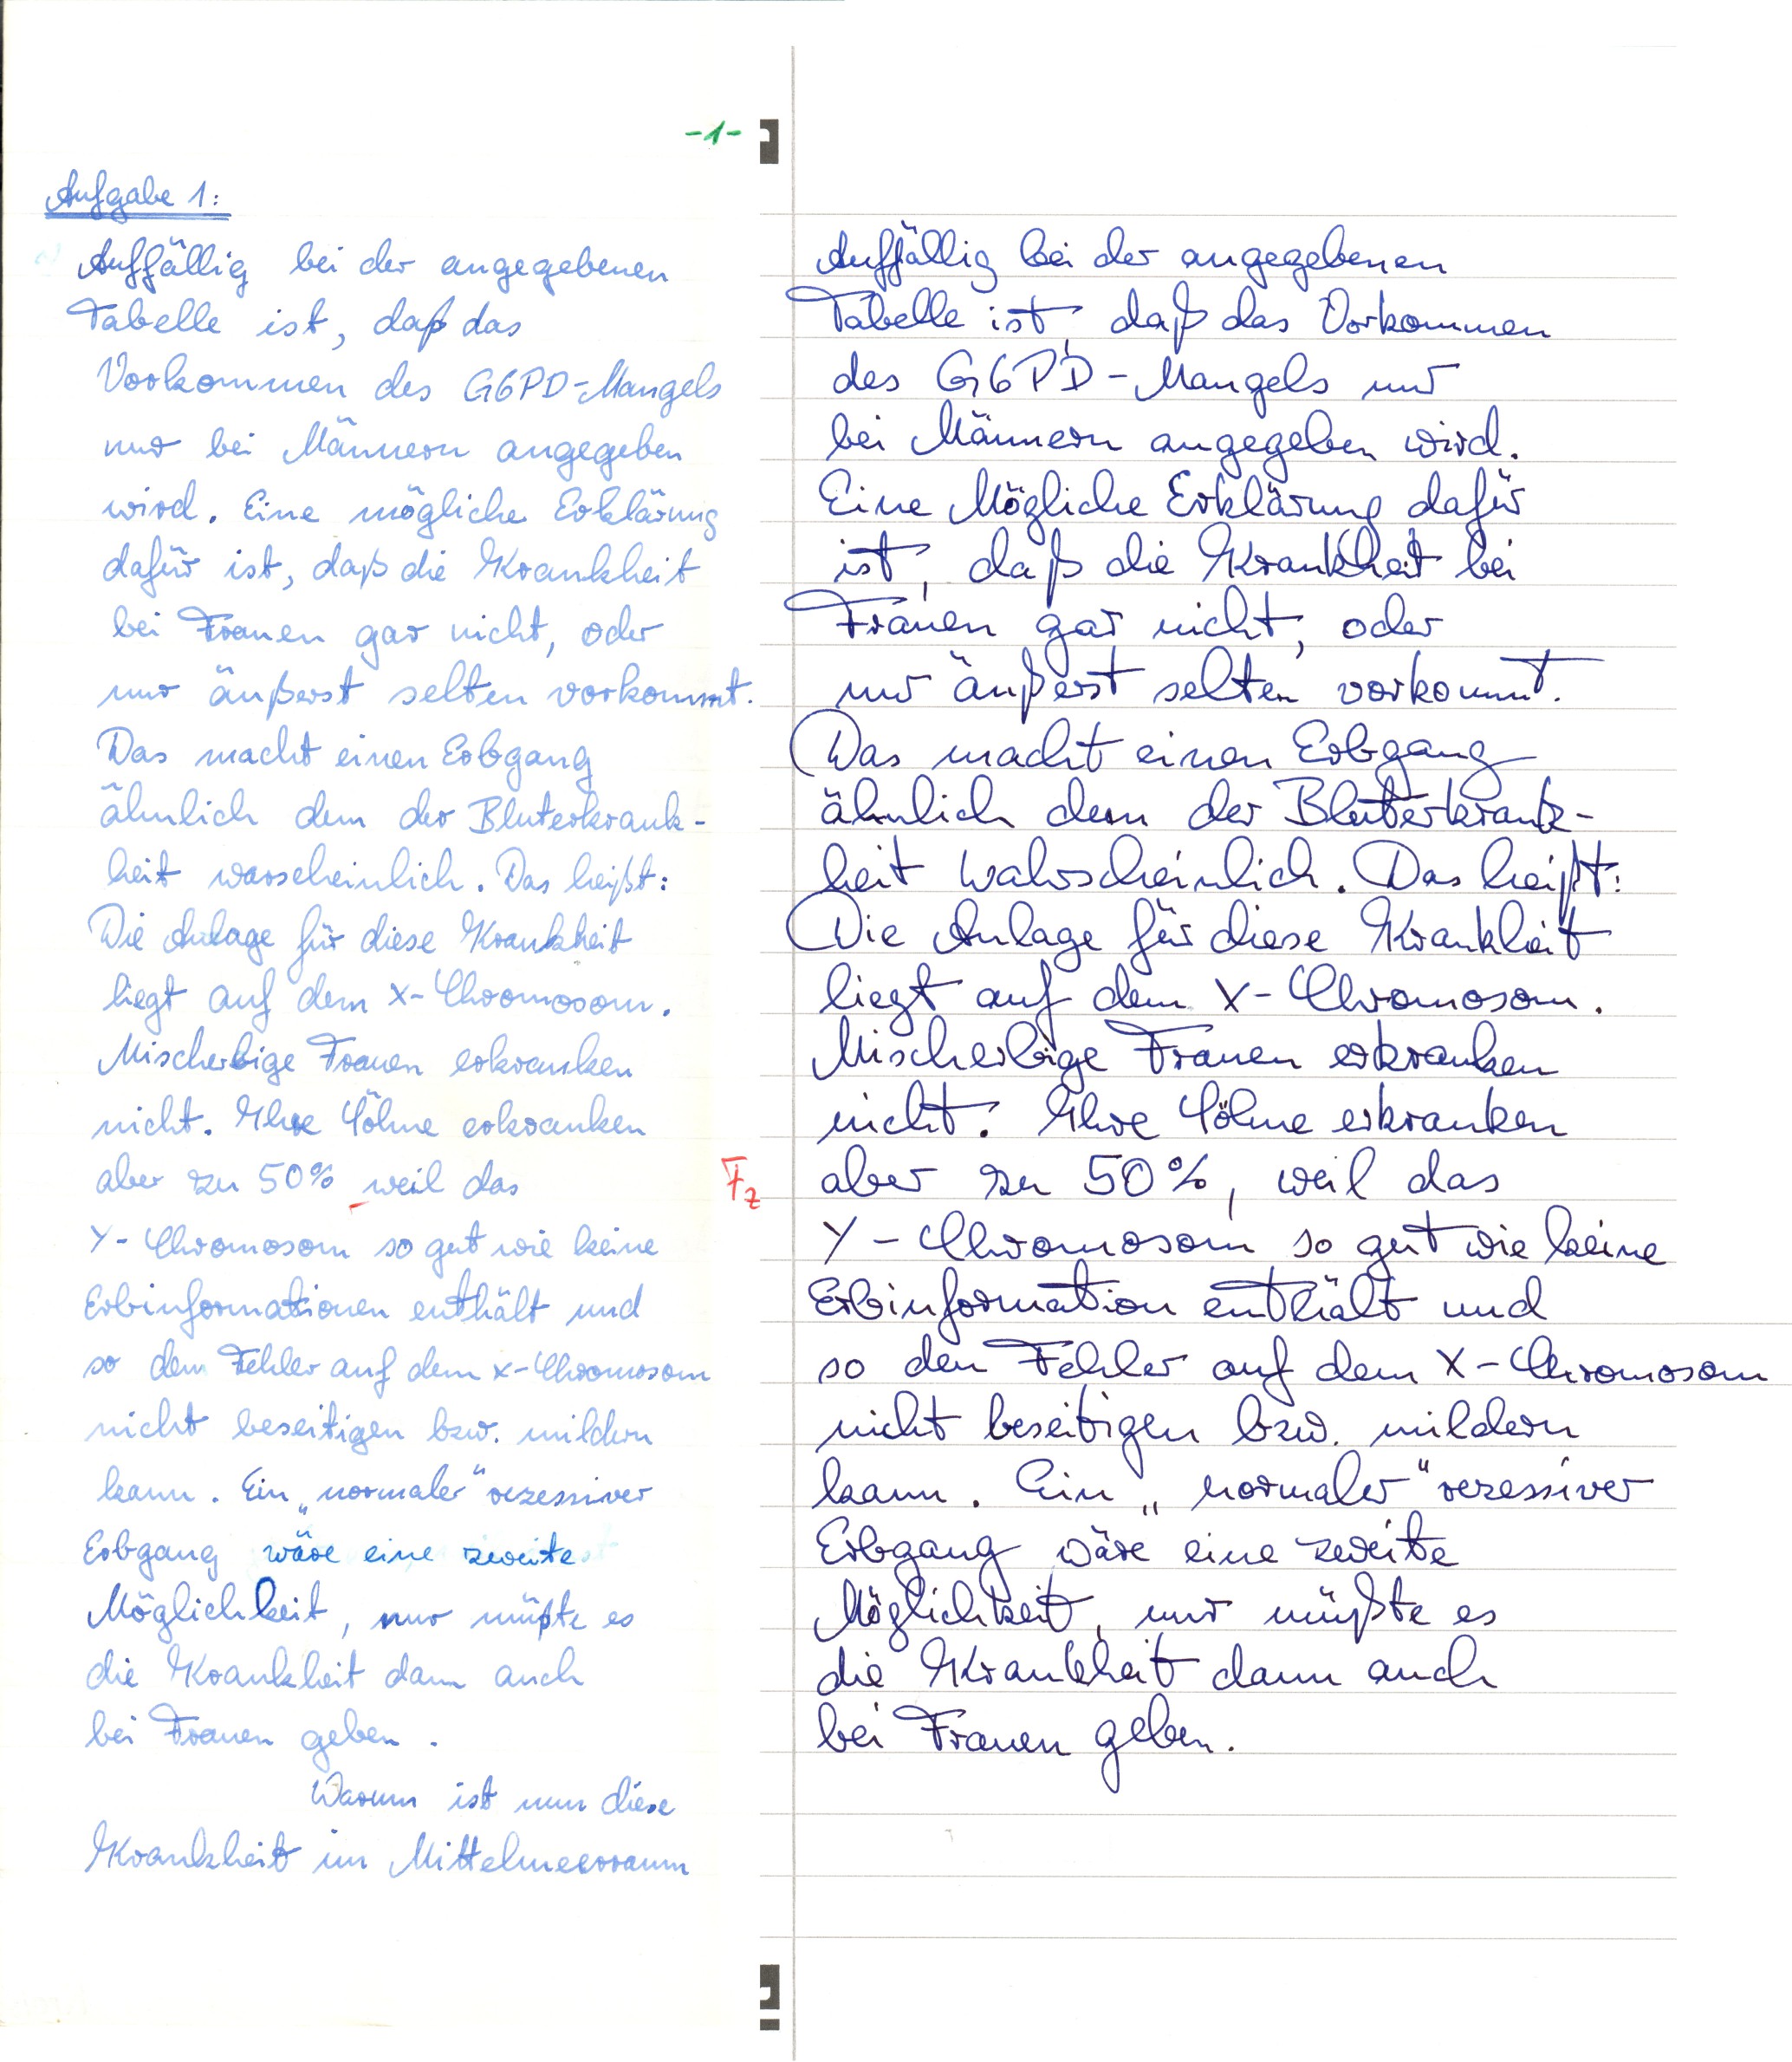 -1-
Aufgabe 1:
Auffällig bei der angegebenen
Tabelle ist, daß das
Vorkommen des G6PD-Mangels
nur bei Männern angegeben
wird. Eine mögliche Erklärung
dafür ist, daß die Krankheit
bei Frauen gar nicht, oder
nur äußerst selten vorkommt.
Das macht einen Erbgang
ähnlich dem der Bluterkrank-
heit warscheinlich. Das heißt:
Die Anlage für diese Krankheit
liegt auf dem X-Chromosom.
Mischerbige Frauen erkranken
nicht. Ihre Söhne erkranken
aber zu 50% weil das
Fz
Y-Chromosom so gut wie keine
Erbinformationen enthält und
so dem Fehler auf dem X-Chromosom
nicht beseitigen bzw. mildern
kann. Ein „normaler“ rezessiver
Erbgang wäre eine zweite
Möglichkeit, nur müßte es
die Krankheit dann auch
bei Frauen geben.
Warum ist nun diese
Krankheit im Mittelmeerraum
Auffällig bei der angegebenen
Tabelle ist, daß das Vorkommen
des G6PD-Mangels nur
bei Männern angegeben wird.
Eine Mögliche Erklärung dafür
ist, daß die Krankheit bei
Frauen gar nicht, oder
nur äußerst selten vorkommt.
Das macht einen Erbgang
ähnlich dem der Bluterkrank-
heit wahrscheinlich. Das heißt:
Die Anlage für diese Krankheit
liegt auf dem X-Chromosom.
Mischerbige Frauen erkranken
nicht. Ihre Söhne erkranken
aber zu 50%, weil das
Y-Chromosom so gut wie keine
Erbinformation enthält und
so den Fehler auf dem X-Chromosom
nicht beseitigen bzw. mildern
kann. Ein „normaler“ rezessiver
Erbgang wäre eine zweite
Möglichkeit, nur müßte es
die Krankheit dann auch
bei Frauen geben.